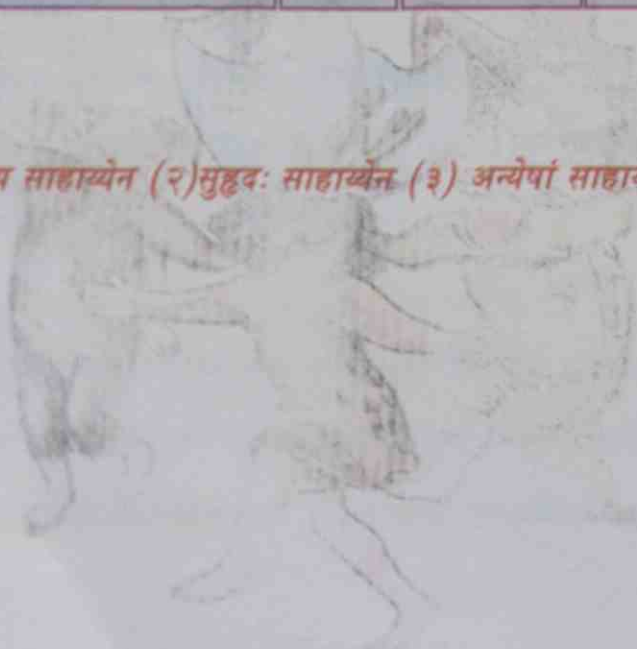 साहाय्येन (२)सुहृदः साहाय्येन (३) अन्येषां